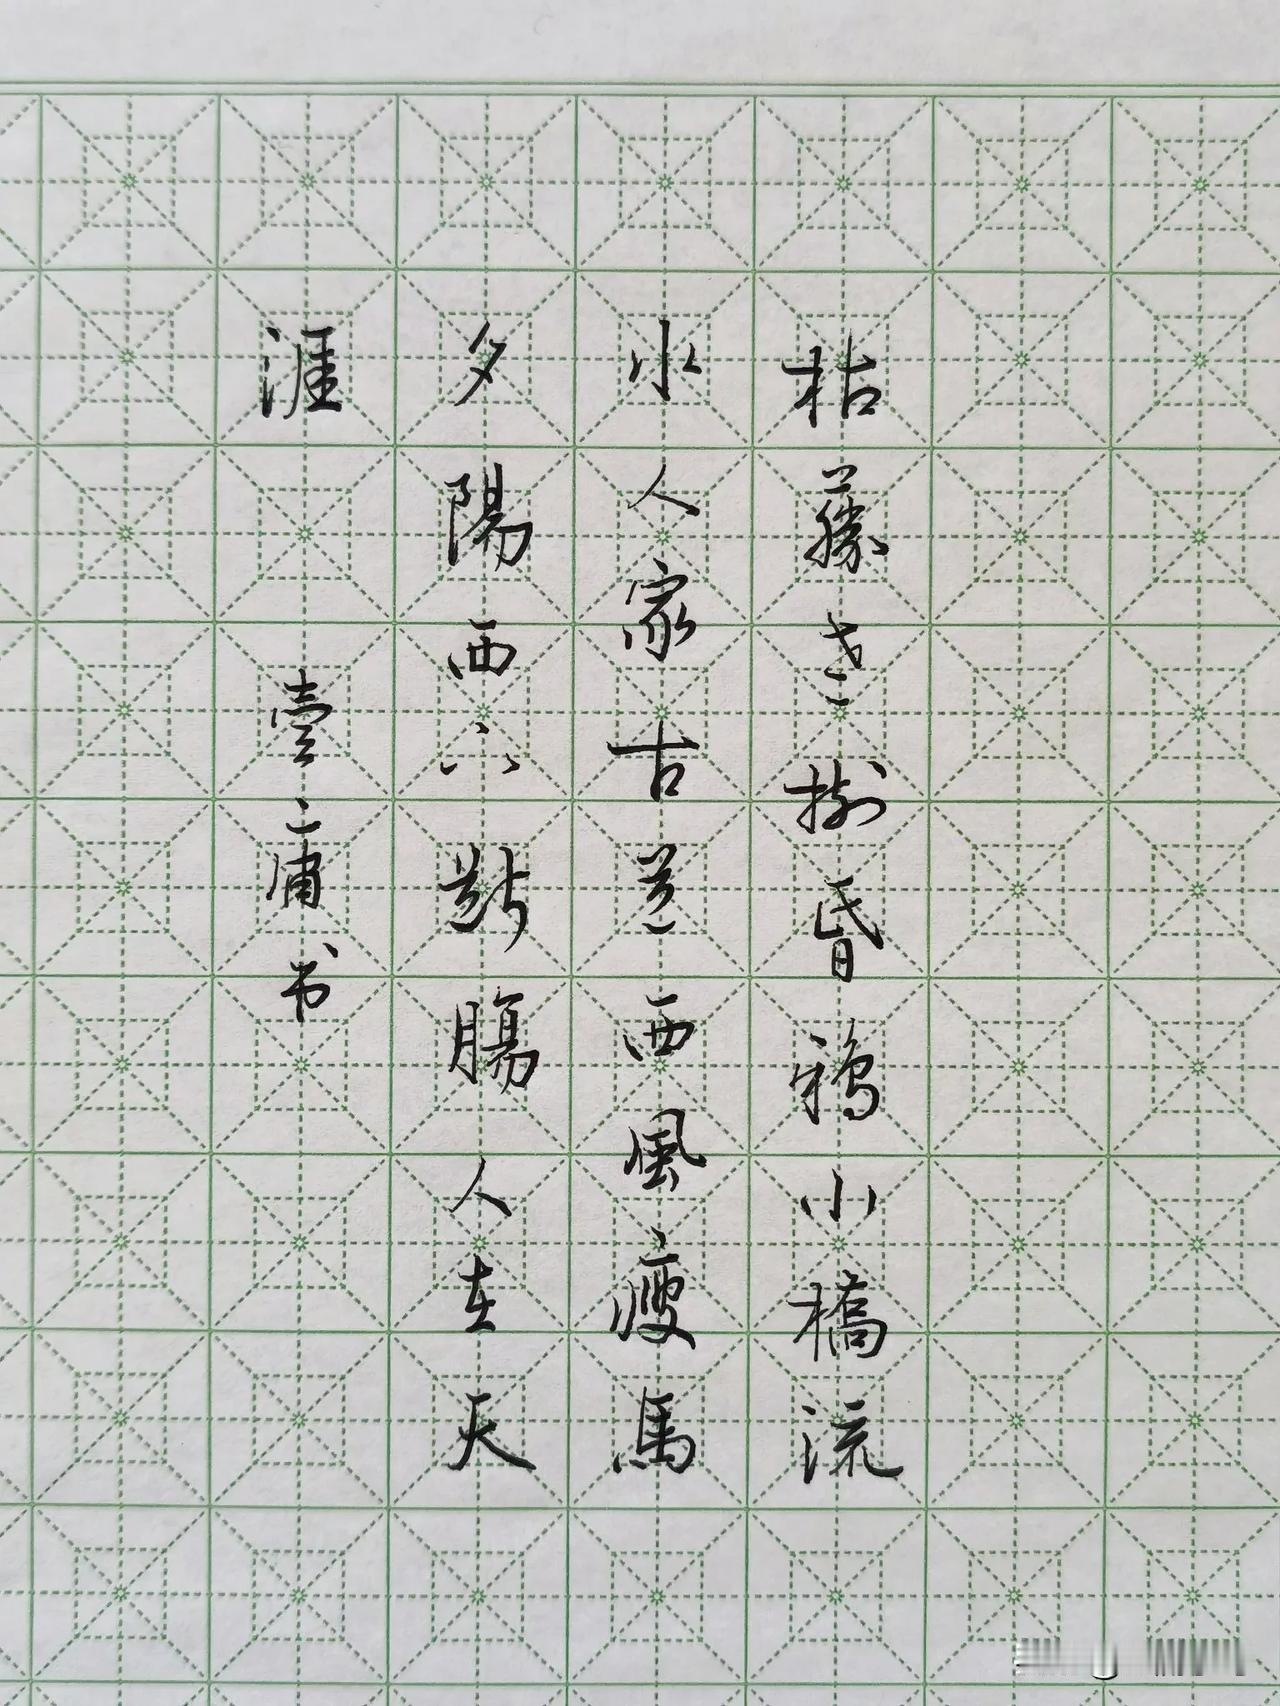 枯藤老樹昏鴉小橋流
水人家古道西風瘦馬
夕陽西下斷腸人在天
涯 壹庸书